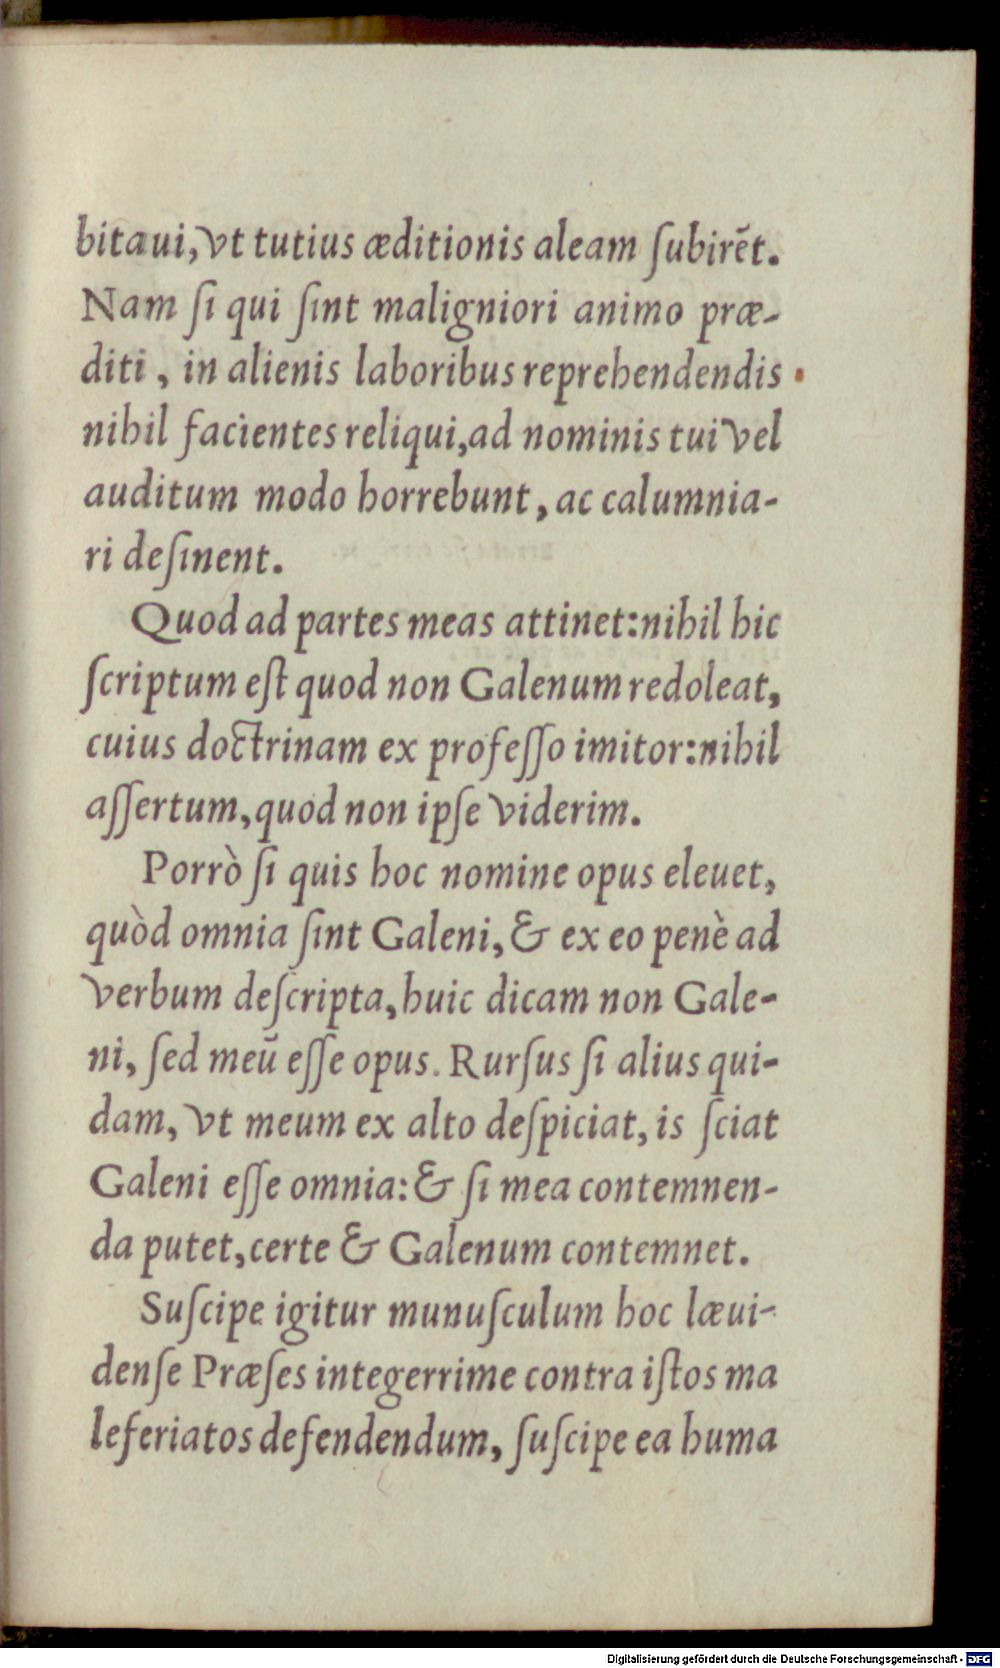 bitaui, vt tutius æditionis aleam ſubirẽt.
Nam ſi qui ſint maligniori animo præ-
diti, in alienis laboribus reprehendendis
nihil facientes reliqui, ad nominis tui vel
auditum modo horrebunt, ac calumnia-
ri deſinent.
Quod ad partes meas attinet: nihil hic
ſcriptum eſt quod non Galenum redoleat,
cuius doctrinam ex profeſſo imitor: nihil
aſſertum, quod non ipſe viderim.
Porrò ſi quis hoc nomine opus eleuet,
quòd omnia ſint Galeni, & ex eo penè ad
verbum deſcripta, huic dicam non Gale-
ni, ſed meũ eſſe opus. Rurſus ſi alius qui-
dam, vt meum ex alto deſpiciat, is ſciat
Galeni eſſe omnia: & ſi mea contemnen-
da putet, certe & Galenum contemnet.
Suſcipe igitur munuſculum hoc læui-
denſe Præſes integerrime contra iſtos ma
leferiatos defendendum, ſuſcipe ea huma
Digitalisierung gefördert durch die Deutsche Forschungsgemeinschaft - DFG